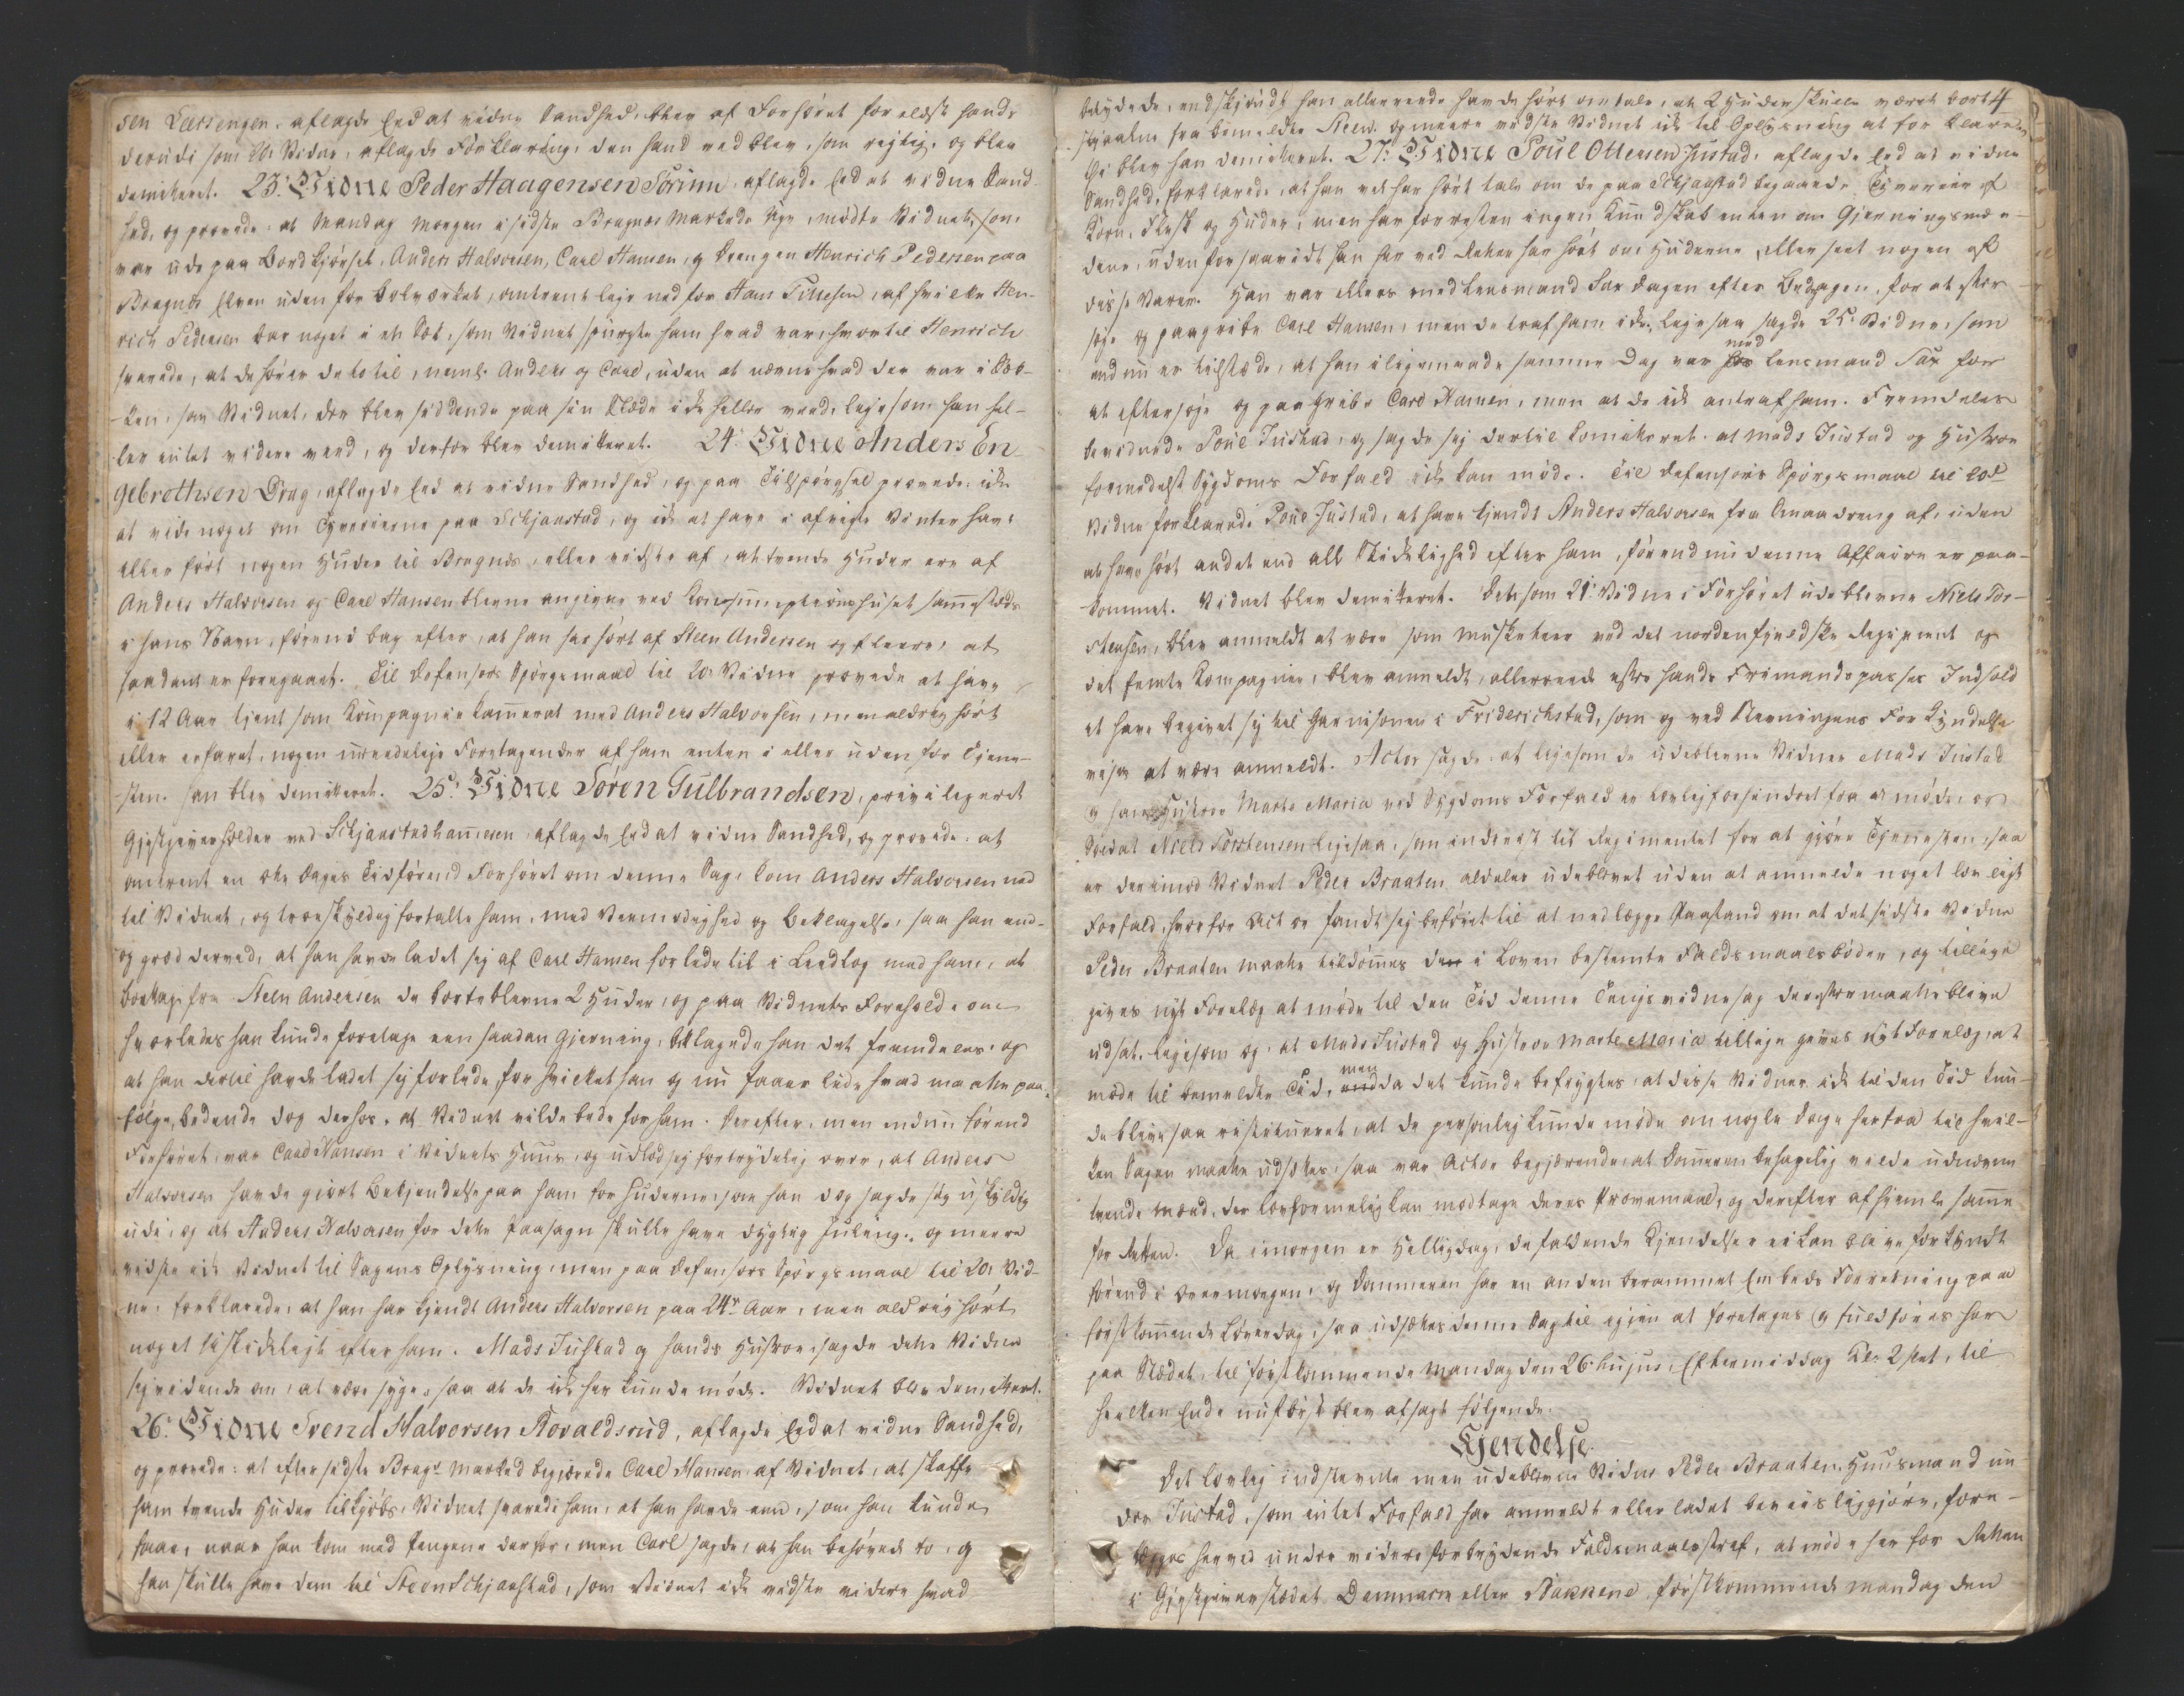 sen Leersengen. aflagde Eed at vidne Sandhed. blev af Forhøret forelæst hands
derudi som 20. Vidne, aflagde Forklaring, den hand vedblev, som rigtig, og blev
demiteret. 23. Vidne Peder Haagensen Sørum, aflagde Eed at vidne Sand-
hed, og provede: at Mandag Morgen i sidste Bragnæs Markeds Uge, mødte Vidnet, som
var ude paa Bordkjørsel, Anders Halvorsen, Carl Hansen, og Drengen Henrich Pedersen paa
Bragnæs Elven uden for Bolværket, omtrent lige ned for Hans Tillesen, af hvilke Hen-
rich Pedersen bar noget i en Sæk, som Vidnet spurgte ham hvad var, hvortil Henrich
svarede, at de hører dette til, neml. Anders og Carl, uden at nævne hvad der var i Sæk-
ken, som Vidnet, der blev siddende paa sin Slæde ikke heller veed, ligesom han hel-
ler intet videre veed, og derfor blev demitteret. 24. Vidne Anders En-
gebrethsen Drag, aflagde Eed at vidne Sandhed, og paa Tilspørgsel provede: ikke
at vide noget om Tyverierne paa Schjaastad, og ikke at have i afvigte Vinter havt
eller ført nogen Huder til Bragnæs, eller vidste af, at tvende Huder ere af
Anders Halvorsen og Carl Hansen blevne angivne ved Consumptionshuset sammesteds
i hans Navn, førend bag efter, at han har hørt af Steen Andersen og fleere, at
saadant er foregaaet. Til Defensors Spørgsmaal til 20. Vidne provede at have
i 12 Aar tjent som Kompagnie Kammerat med Anders Halvorsen, men aldrig hørt
eller erfaret, nogen uredelige Foretagender af ham enten i eller uden for Tjene-
sten. han blev demitteret. 25. Vidne Søren Gulbrandsen, priviligeret
Gjestgiverholder ved Schjaastadhammeren aflagde Eed at vidne Sandhed, og provede: at
omtrent en otte Dages Tid førend Forhøret om denne Sag, kom Anders Halvorsen ned
til Vidnet, og troeskyldig fortalte ham, med Veemodighed og Beklagelse, saa han end-
og græd derved, at han havde ladet sig af Carl Hansen forlede til i Leedtog med ham, at
borttage fra Steen Andersen de bortblevne 2 Huder, og paa Vidnets Foreholde om
hvorledes han kunde foretage een saadan Gjerning, beklagede han det fremdeles, og
at han dertil havde ladet sig forlede, for hvilket han og nu faaer lide hvad maatte paa-
følge, bedende dog derhos, at Vidnet vilde bede for ham. Derefter, men endnu førend
Forhøret, var Carl Hansen i Vidnets Huus, og udlod sig fortrydelig over, at Anders
Halvorsen havde giort Bekjendelse paa ham for Huderne, som han dog sagde sig uskyldig
udi, og at Anders Halvorsen for dette Paasagn skulle have dygtig Juling. og meere
vidste ikke Vidnet til Sagens Oplysning, men paa Defensors Spørgsmaal til 20. Vid-
ne: forklarede, at han har kjendt Anders Halvorsen paa 24de Aar, men aldrig hørt
noget uskikkeligt efter ham. Mads Justad og hands Hustroe, sagde dette Vidne
sig vidende om, at være syge, saa at de ikke her kunde møde. Vidnet blev demitteret.
26. Vidne Svend Halvorsen Rovaldsrud, aflagde Eed at vidne Sandhed,
og provede: at efter sidste Bragn. Marked begjerede Carl Hansen af Vidnet, at skaffe
ham tvende Huder tilkjøbs, Vidnet svarede ham, at han havde een, som han kunde
faae, naar han kom med Pengene derfor, men Carl sagde, at han behøvede to, og
han skulle have dem til Steen Schjaastad, som Vidnet ikke vidste videre hvad
4
betydede, endskjøndt han allereede havde hørt omtale, at 2 Huder skulle været bort
stjaalne fra bemeldte Steen. og meere vidste Vidnet ikke til Oplysning at forklare
thi blev han demitteret. 27. Vidne Poul Ottersen Justad. aflagde Eed at vidne
Sandhed, forklarede, at han vel har hørt tale om de paa Schjaastad begaaede Tyverier af
Korn, Flesk og Huder, men har forresten ingen Kundskab enten om Gjerningsmæn-
dene, uden forsaavidt han her ved Retten har hørt om Huderne, eller seet nogen af
disse Varer. Han var ellers med Lensmand Sax Dagen efter Bededagen, for at efter-
søge og paagribe Carl Hansen, men de traf ham ikke, ligesaa sagde 25. Vidne, som
endnu er tilstæde, at han iligemaade samme Dag var med Lensmand Sax for
at eftersøge og paagribe Carl Hansen, men at de ikke antraf ham. Fremdeles
bevidnede Poul Justad, og sagde sig dertil Comitteret. at Mads Justad og Hustroe
formedelst Sygdoms Forfald ikke kan møde. Til Defensors Spørgsmaal til 20de
Vidne forklarede Poul Justad, at have kjendt Anders Halvorsen fra Smaadreng af, uden
at have hørt andet end all Skikkelighed efter ham, førend nu denne Affaire er paa-
kommet. Vidnet blev demitteret. Det som 21. Vidne i Forhøret udeblevne Niels Tor-
stensen, blev anmeldt at være som Musketeer ved det nordenfjeldske Regiment og
det femte Kompagnie, blev anmeldt, allereede efter hands Frimandspasses Indhold
at have begivet sig til Garnisonen i Friderichstad, som og ved Stevningens Forkyndelse
vises at være anmeldt. Actor sagde: at ligesom de udeblevne Vidner Mads Justad
og hans Hustroe Marte Maria ved Sygdoms Forfald er lovlig forhindret fra at møde, og
Soldat Niels Torstensen ligesaa, som inderist til Regimentet for at gjøre Tjenesten, saa
er derimod Vidnet Peder Braaten aldeles udeblevet uden at anmelde noget lovligt
Forfald, hvorfor Actor fandt sig beføiet til at nedlægge Paastand om at det sidste Vidne
Peder Braaten maatte tildømmes den i Loven bestemte Faldsmaalsbøder, og tillige
gives nyt Forelæg at møde til den Tid denne Tingsvidnesag derefter maatte blive
udsat, ligesom og, at Mads Justad og Hustroe Marte Maria tillige gives Nyt Forelæg, at
møde til bemeldte Tid, men da det kunde befrygtes, at disse Vidner ikke til den Tid kun-
de blive saa restitueret, at de personlig kunde møde om nogle Dage herfra til hvil-
ken Sagen maatte udsættes, saa var Actor begjærende, at Dommeren behagelig vilde udnævne
tvende Mænd, der lovformelig kan modtage deres Provemaal, og derefter afhiemle samme
for Retten. Da imorgen er Helligdag, de faldende Kjendelser ei kan blive forkyndt
førend i Overmorgen, og Dommeren har en anden berammet Embeds Forretning paa
førstkommende Løverdag, saa udsættes denne Sag til igjen at foretages og fuldføres her
paa Stædet, til førstkommende Mandag den 26. hujus, Eftermiddag Kl. 2 slet, til
hvilken Ende nu først blev afsagt følgende
Kjendelse.
Det lovlig indstævnte men udeblevne Vidne Peder Braaten, Huusmand un-
der Justad, som intet Forfald har anmeldt eller ladet beviisliggjøre, fore-
lægges herved under videre forbrydende Faldsmaalsstraf, at møde her for Retten
i Gjestgiverstædet Danmark eller Bakkene førstkommende Mandag den